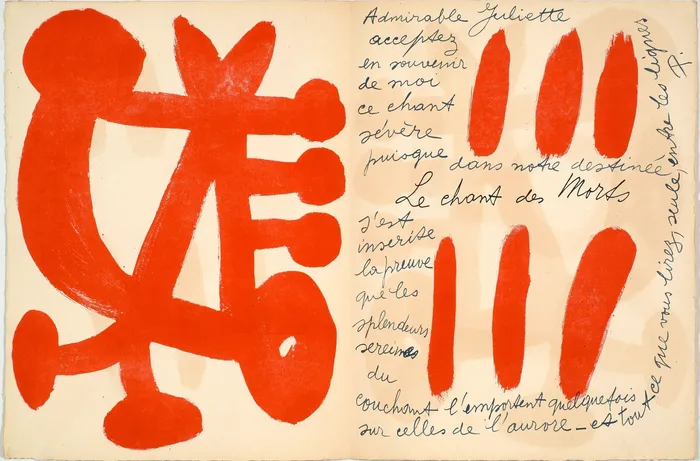 Admirable Juliette
acceptez
en souvenir
de moi
ce chant
sévère
puisque dans notre destinée
Le chant des Morts
s'est
inscrite
la preuve
que les
splendeurs
sereines
du
couchant l'emportent quelquefois
sur celles de l'aurore – et tout
ce que vous lirez, seule, entre les lignes
P.